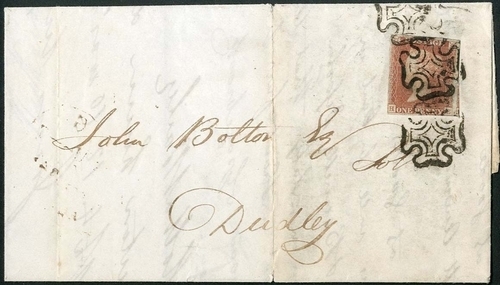 ONE PENNY
John Bolton Esq
Sol
Dudley